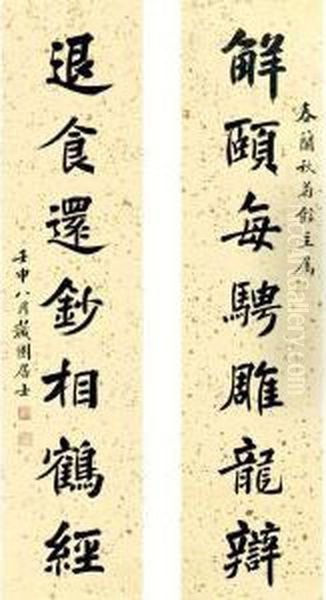 春蘭秋菊館主屬
觧頤每騁雕龍辯
退食還鈔相鶴經
壬申八月藏園居士